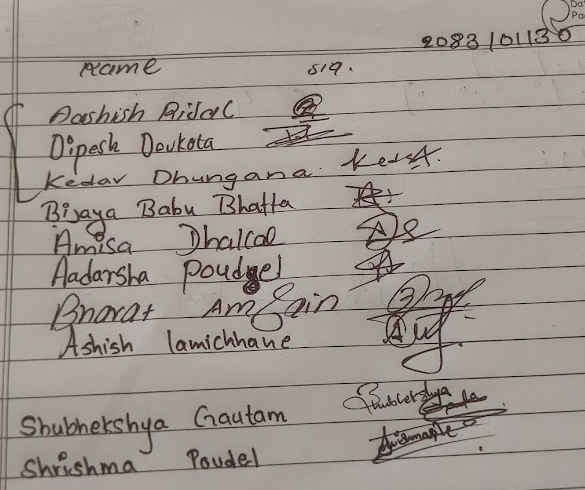 2083/01/30
Name sig.
Aashish Aidal
Dipesh Devkota
Kedar Dhungana KedA.
Bijaya Babu Bhatta
Amisa Dhalcal
Aadarsha Poudyel
Bharat Amgain
Ashish lamichhane
Shubhekshya Gautam Shubhekshya
Shrishma Poudel